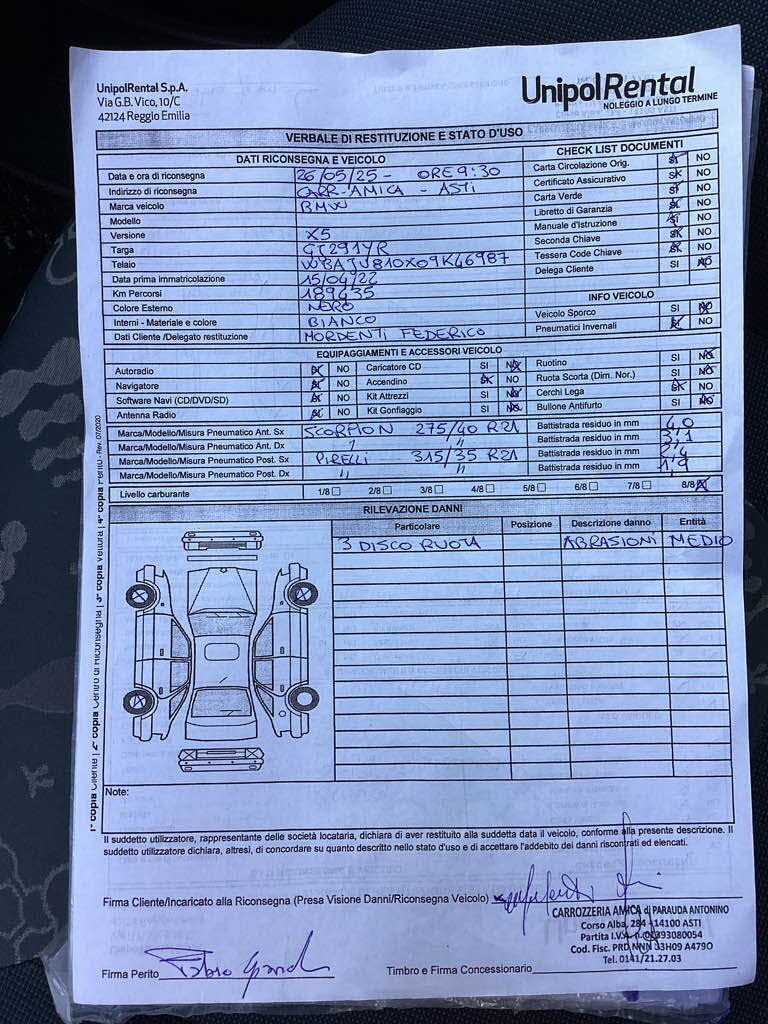 UnipolRental S.p.A.
Via G.B. Vico, 10/C
42124 Reggio Emilia
UnipolRental
NOLEGGIO A LUNGO TERMINE
VERBALE DI RESTITUZIONE E STATO D'USO
DATI RICONSEGNA E VEICOLO
Data e ora di riconsegna 26/05/25 - ORE 9:30
Indirizzo di riconsegna CARR-AMICA - ASTI
Marca veicolo BMW
Modello
Versione X5
Targa GJ291YR
Telaio WBAJU810X09K46987
Data prima immatricolazione 15/04/22
Km Percorsi 189435
Colore Esterno NERO
Interni - Materiale e colore BIANCO
Dati Cliente /Delegato restituzione MORDENTI FEDERICO
CHECK LIST DOCUMENTI
Carta Circolazione Orig. SI NO
Certificato Assicurativo SI NO
Carta Verde SI NO
Libretto di Garanzia SI NO
Manuale d'Istruzione SI NO
Seconda Chiave SI NO
Tessera Code Chiave SI NO
Delega Cliente SI NO
INFO VEICOLO
Veicolo Sporco SI NO
Pneumatici Invernali SI NO
EQUIPAGGIAMENTI E ACCESSORI VEICOLO
Autoradio SI NO Caricatore CD SI NO Ruotino SI NO
Navigatore SI NO Accendino SI NO Ruota Scorta (Dim. Nor.) SI NO
Software Navi (CD/DVD/SD) SI NO Kit Attrezzi SI NO Cerchi Lega SI NO
Antenna Radio SI NO Kit Gonfiaggio SI NO Bullone Antifurto SI NO
Marca/Modello/Misura Pneumatico Ant. Sx SCORPION 275/40 R21 Battistrada residuo in mm 4,0
Marca/Modello/Misura Pneumatico Ant. Dx " " Battistrada residuo in mm 3,1
Marca/Modello/Misura Pneumatico Post. Sx PIRELLI 315/35 R21 Battistrada residuo in mm 2,4
Marca/Modello/Misura Pneumatico Post. Dx " " Battistrada residuo in mm 1,9
Livello carburante 1/8 2/8 3/8 4/8 5/8 6/8 7/8 8/8
RILEVAZIONE DANNI
Particolare Posizione Descrizione danno Entità
3 DISCO RUOTA ABRASIONI MEDIO
Note:
Il suddetto utilizzatore, rappresentante delle società locataria, dichiara di aver restituito alla suddetta data il veicolo, conforme alla presente descrizione. Il
suddetto utilizzatore dichiara, altresì, di concordare su quanto descritto nello stato d'uso e di accettare l'addebito dei danni riscontrati ed elencati.
Firma Cliente/Incaricato alla Riconsegna (Presa Visione Danni/Riconsegna Veicolo)
CARROZZERIA AMICA di PARAUDA ANTONINO
Corso Alba, 284 - 14100 ASTI
Partita I.V.A. n. 01393080054
Cod. Fisc. PRD NNN 33H09 A479O
Tel. 0141/21.27.03
Firma Perito Timbro e Firma Concessionario
1ª copia Cliente | 2ª copia Centro di Riconsegna | 3ª copia Vettura | 4ª copia Perito - Rev. 07/2020